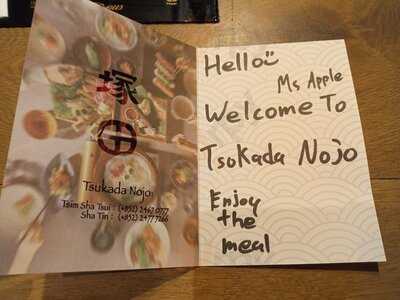 塚
田
Tsukada Nojo
Tsim Sha Tsui : (+852) 2467 0777
Sha Tin : (+852) 2477 7266
Hello
Ms Apple
Welcome To
Tsukada Nojo
Enjoy
the
meal